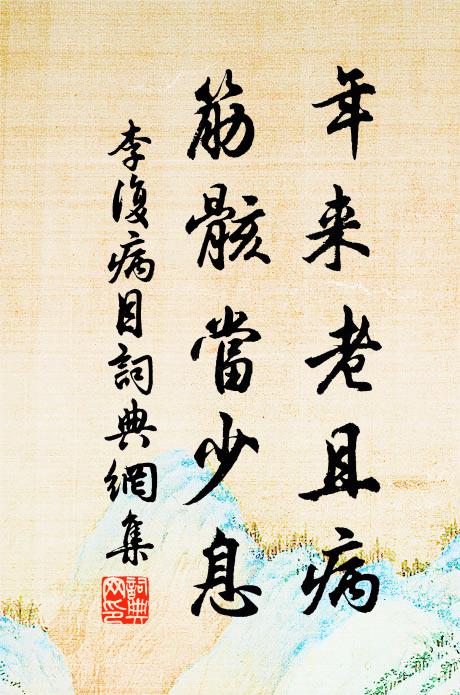 年来老且病
筋骸當少息
李復病目詞典網集
詞典